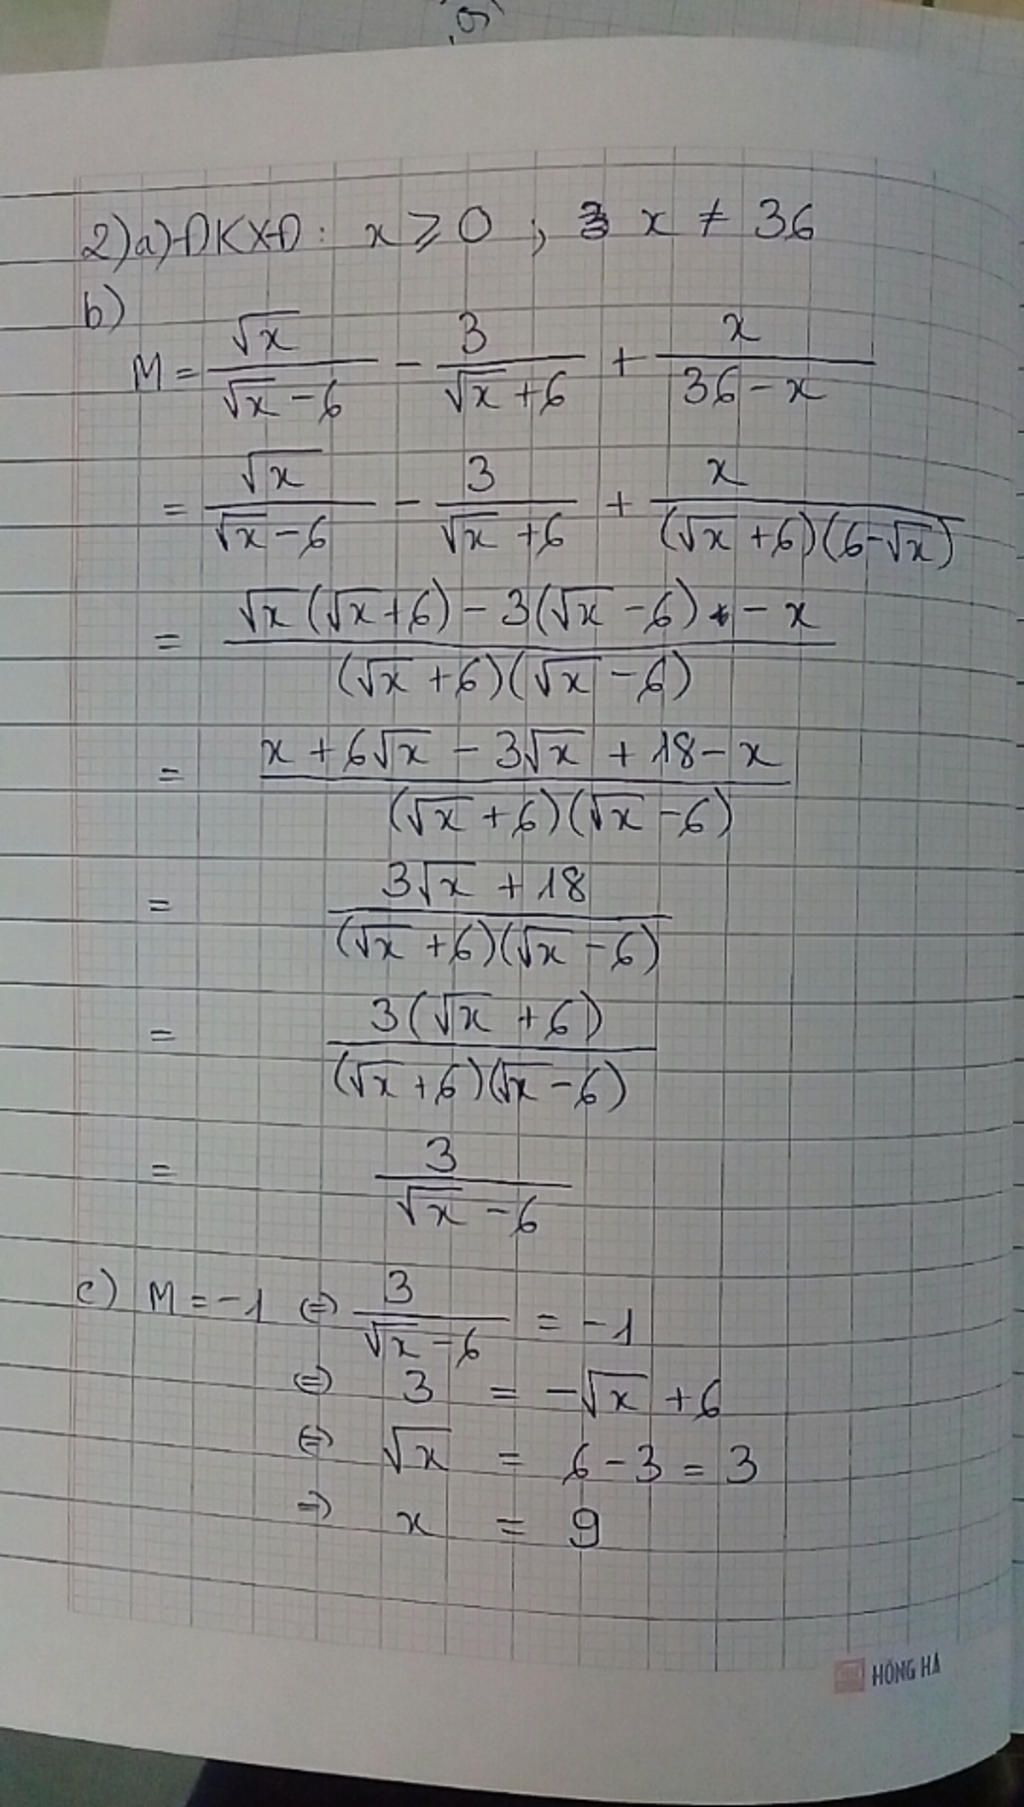 2) a) ĐKXĐ: x ⩾ 0 ; x ≠ 36
b)
M = √x/(√x - 6) - 3/(√x + 6) + x/(36 - x)
= √x/(√x - 6) - 3/(√x + 6) + x/((√x + 6)(6 - √x))
= (√x(√x + 6) - 3(√x - 6) - x)/((√x + 6)(√x - 6))
= (x + 6√x - 3√x + 18 - x)/((√x + 6)(√x - 6))
= (3√x + 18)/((√x + 6)(√x - 6))
= 3(√x + 6)/((√x + 6)(√x - 6))
= 3/(√x - 6)
c) M = -1 ⇔ 3/(√x - 6) = -1
⇔ 3 = -√x + 6
⇔ √x = 6 - 3 = 3
⇒ x = 9
HỒNG HÀ